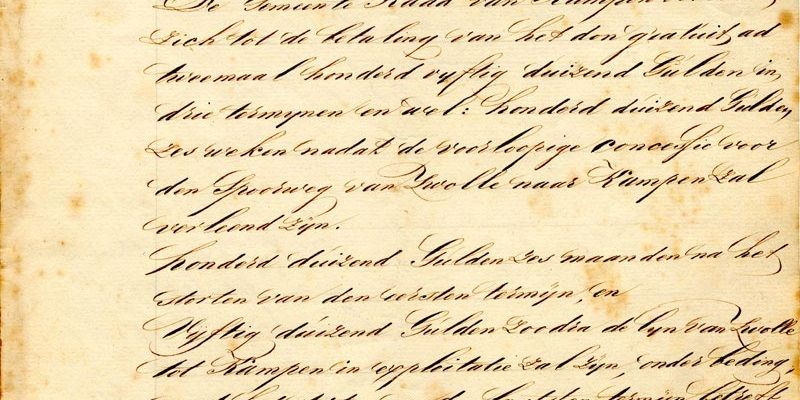 De Gemeente Raad van Kampen
zich tot de betaling van het don gratuit, ad
tweemaal honderd vyftig duizend Gulden in
drie termynen en wel: honderd duizend Gulden
zes weken nadat de voorloopige concessie voor
den Spoorweg van Zwolle naar Kampen zal
verleend zyn.
honderd duizend Gulden zes maanden na het
storten van den eersten termyn, en
Vyftig duizend Gulden zoodra de lyn van Zwolle
tot Kampen in exploitatie zal zyn, onder beding,
termyn betreft